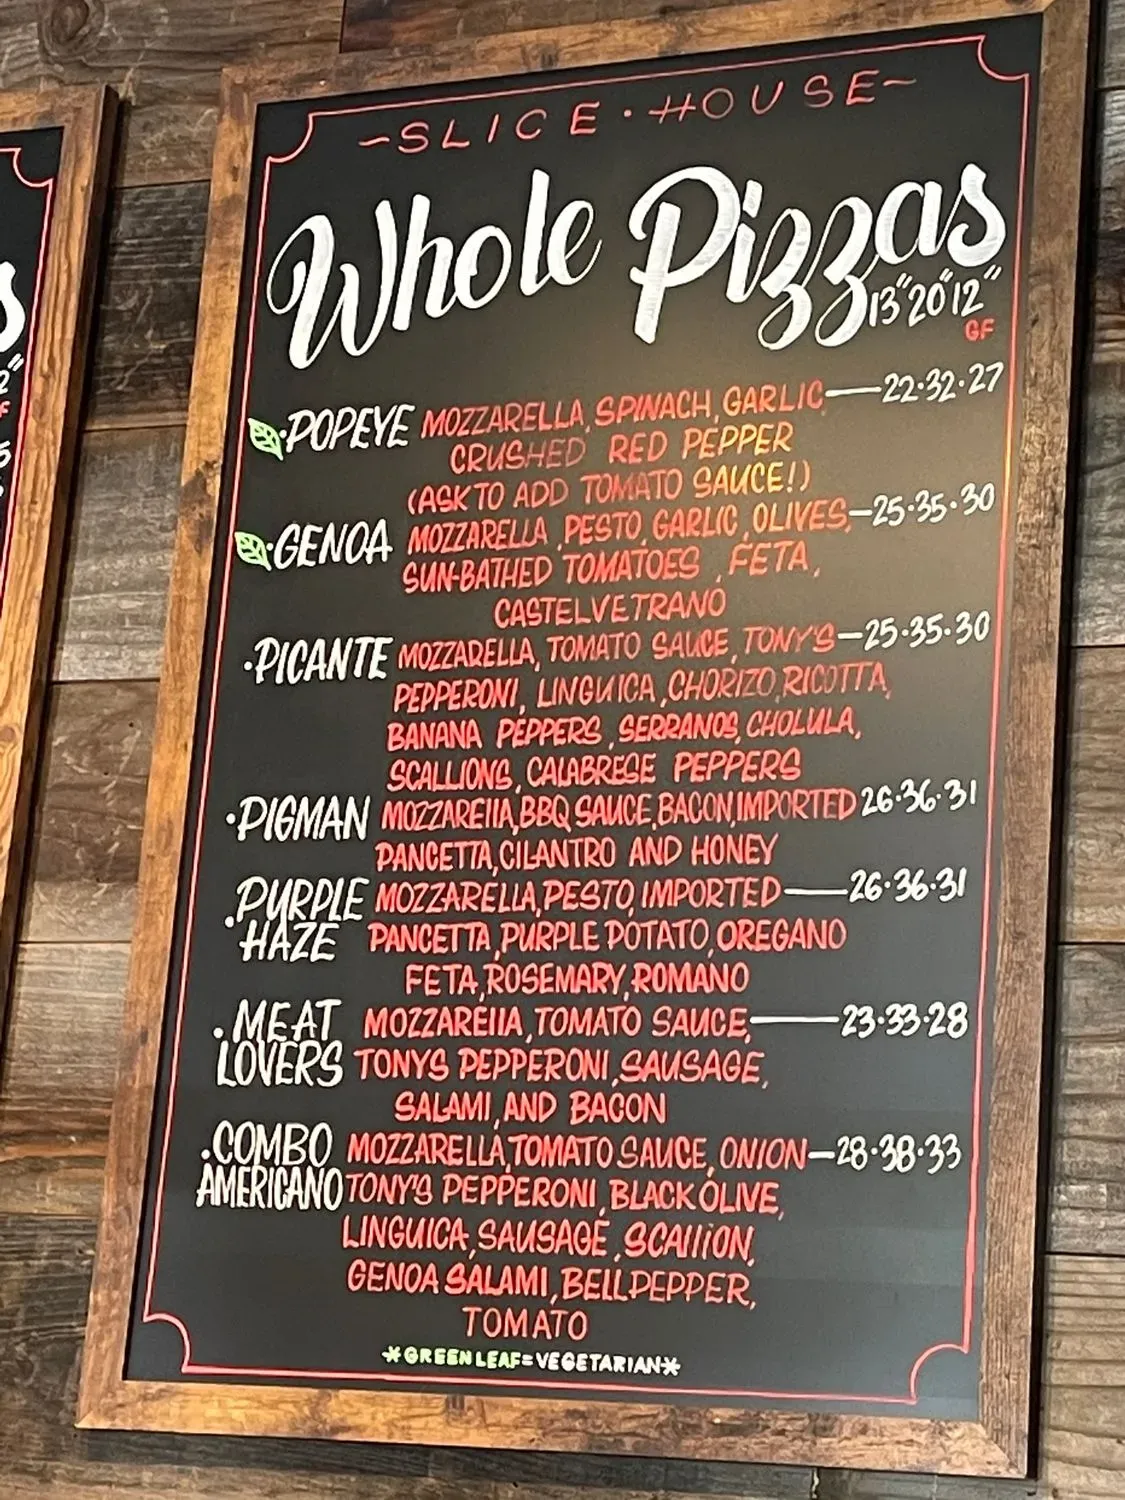 ~SLICE·HOUSE~
Whole Pizzas
13"20"12"
GF
·POPEYE MOZZARELLA, SPINACH, GARLIC—22·32·27
CRUSHED RED PEPPER
(ASK TO ADD TOMATO SAUCE!)
·GENOA MOZZARELLA, PESTO, GARLIC, OLIVES,—25·35·30
SUN-BATHED TOMATOES, FETA,
CASTELVETRANO
·PICANTE MOZZARELLA, TOMATO SAUCE, TONY'S—25·35·30
PEPPERONI, LINGUICA, CHORIZO, RICOTTA,
BANANA PEPPERS, SERRANOS, CHOLULA,
SCALLIONS, CALABRESE PEPPERS
·PIGMAN MOZZARELLA, BBQ SAUCE, BACON, IMPORTED 26·36·31
PANCETTA, CILANTRO AND HONEY
·PURPLE HAZE MOZZARELLA, PESTO, IMPORTED—26·36·31
PANCETTA, PURPLE POTATO, OREGANO
FETA, ROSEMARY, ROMANO
·MEAT LOVERS MOZZARELLA, TOMATO SAUCE,—23·33·28
TONYS PEPPERONI, SAUSAGE,
SALAMI, AND BACON
·COMBO AMERICANO MOZZARELLA, TOMATO SAUCE, ONION—28·38·33
TONY'S PEPPERONI, BLACK OLIVE,
LINGUICA, SAUSAGE, SCALLION,
GENOA SALAMI, BELL PEPPER,
TOMATO
*GREEN LEAF=VEGETARIAN*